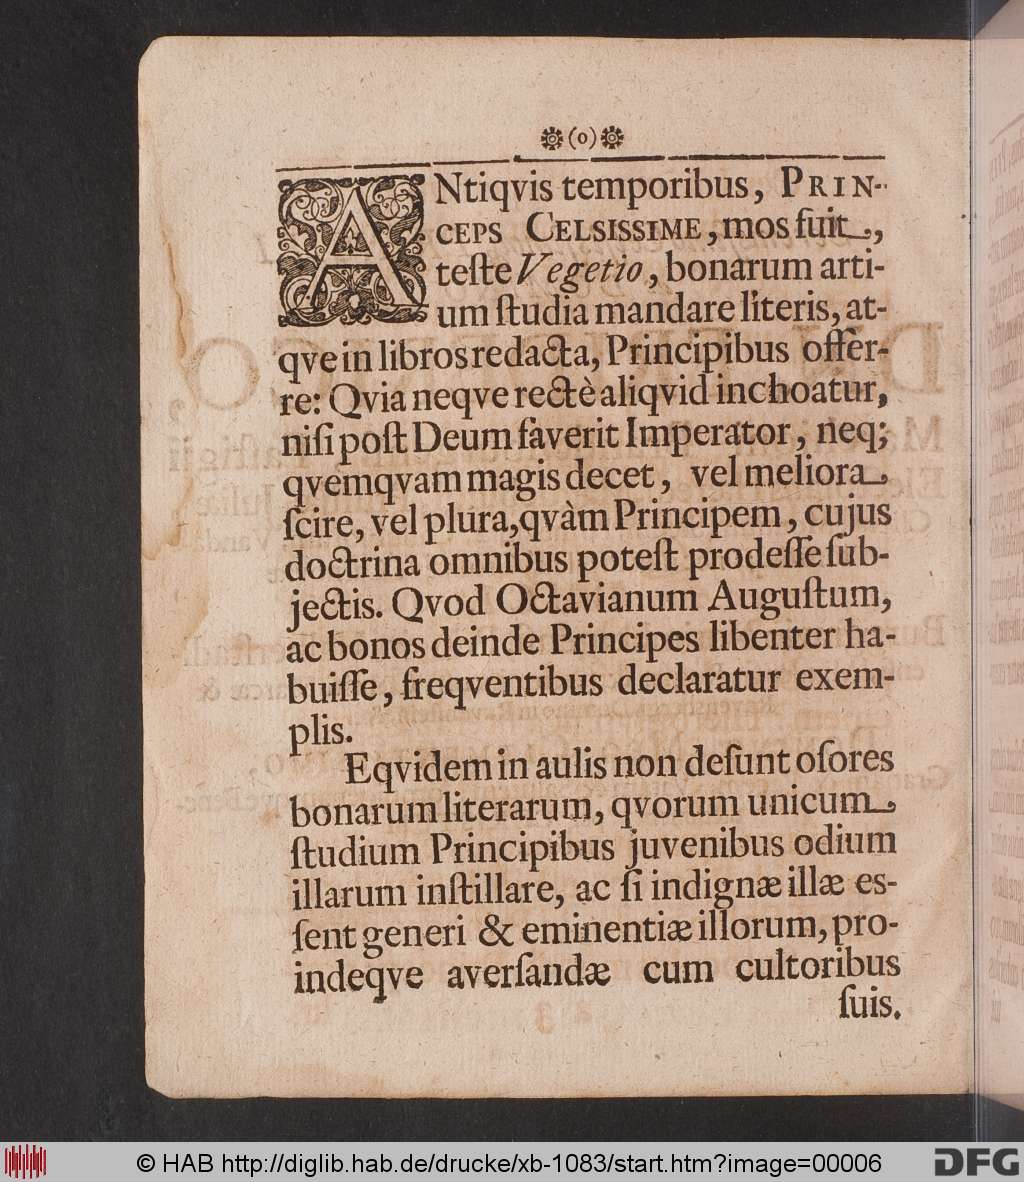 (o)
ANtiqvis temporibus, PRIN-
CEPS CELSISSIME, mos fuit,
teſte Vegetio, bonarum arti-
um ſtudia mandare literis, at-
qve in libros redacta, Principibus offer-
re: Qvia neqve rectè aliqvid inchoatur,
niſi poſt Deum faverit Imperator, neq;
qvemqvam magis decet, vel meliora
ſcire, vel plura, qvàm Principem, cujus
doctrina omnibus poteſt prodeſſe ſub-
jectis. Qvod Octavianum Auguſtum,
ac bonos deinde Principes libenter ha-
buiſſe, freqventibus declaratur exem-
plis.
Eqvidem in aulis non deſunt oſores
bonarum literarum, qvorum unicum
ſtudium Principibus juvenibus odium
illarum inſtillare, ac ſi indignæ illæ es-
ſent generi & eminentiæ illorum, pro-
indeqve averſandæ cum cultoribus
ſuis.
© HAB http://diglib.hab.de/drucke/xb-1083/start.htm?image=00006
DFG